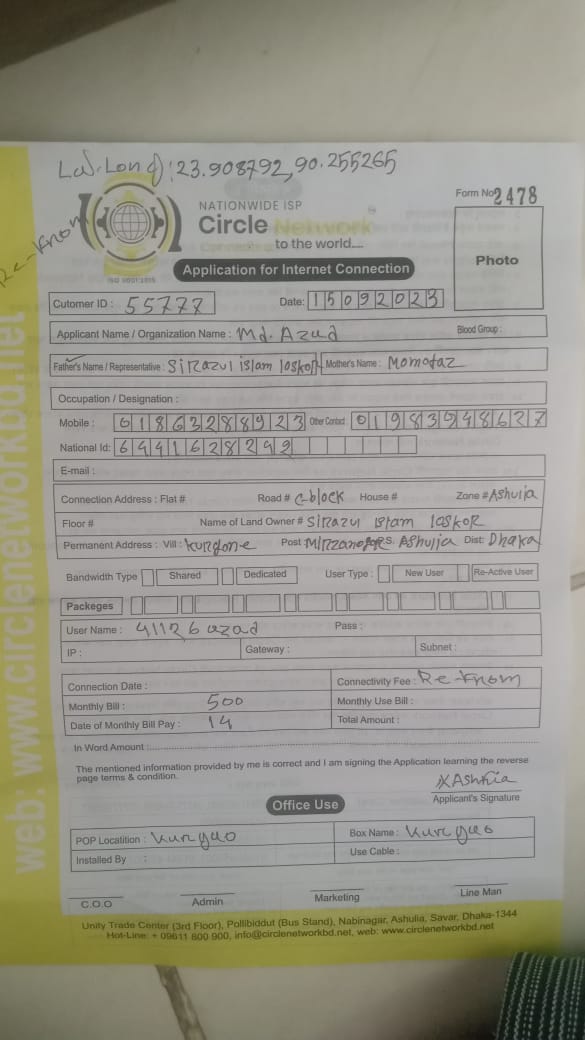 Lat-Long: 23.908792, 90.255265
Re-Know
NATIONWIDE ISP
Circle Network
to the world....
ISO 9001:2015
Form No 2478
Photo
Application for Internet Connection
Cutomer ID : 55777 Date: 15092023
Applicant Name / Organization Name : Md. Azad Blood Group :
Father's Name / Representative : Sirazul islam laskor Mother's Name : Momotaz
Occupation / Designation :
Mobile : 01863288923 Other Contact : 01983948627
National Id: 6441628292
E-mail :
Connection Address : Flat # Road # c-block House # Zone # Ashulia
Floor # Name of Land Owner # Sirazul islam laskor
Permanent Address : Vill : kurgone Post Mirzanagor P.S. Ashulia Dist: Dhaka
Bandwidth Type Shared Dedicated User Type : New User Re-Active User
Packeges
User Name : 41126 azad Pass :
IP : Gateway : Subnet :
Connection Date : Connectivity Fee : Re-Know
Monthly Bill : 500 Monthly Use Bill :
Date of Monthly Bill Pay : 14 Total Amount :
In Word Amount :
The mentioned information provided by me is correct and I am signing the Application learning the reverse
page terms & condition.
Applicant's Signature
Office Use
POP Locatition : kurgao Box Name : kurgao
Installed By : Use Cable :
C.O.O Admin Marketing Line Man
Unity Trade Center (3rd Floor), Pollibiddut (Bus Stand), Nabinagar, Ashulia, Savar, Dhaka-1344
Hot-Line: + 09611 800 900, info@circlenetworkbd.net, web: www.circlenetworkbd.net
web: www.circlenetworkbd.net